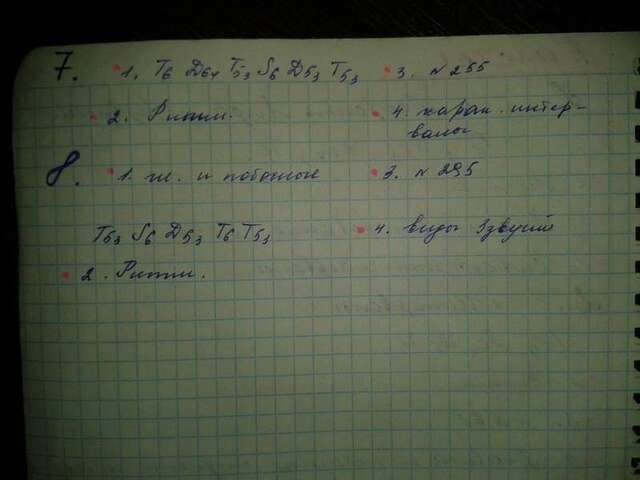 7. 1. T6 D64 T53 S6 D53 T53 3. № 255
2. Ритм. 4. харак. интер-
валы
8. 1. гл. и побочные 3. № 295
T53 S6 D53 T6 T53 4. виды 3звучий
2. Ритм.